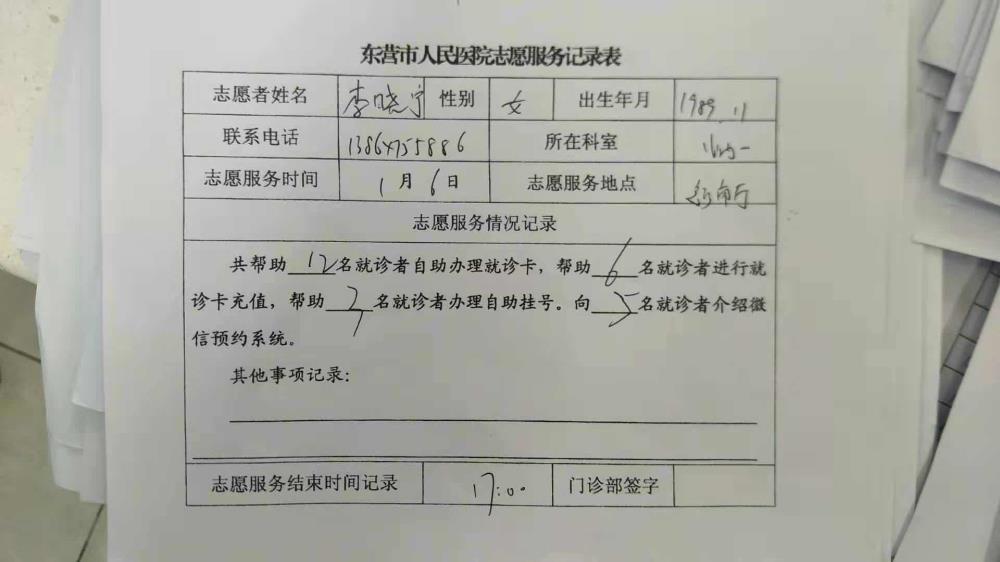 东营市人民医院志愿服务记录表
志愿者姓名 李晓宁 性别 女 出生年月 1989.11
联系电话 13864755886 所在科室
志愿服务时间 1月6日 志愿服务地点
志愿服务情况记录
共帮助12名就诊者自助办理就诊卡，帮助6名就诊者进行就
诊卡充值，帮助7名就诊者办理自助挂号。向5名就诊者介绍微
信预约系统。
其他事项记录：
志愿服务结束时间记录 17:00 门诊部签字